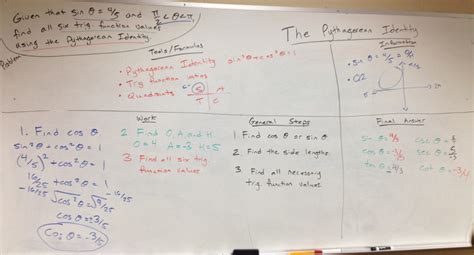 Given that sin θ = 4/5 and π/2 < θ < π
find all six trig. function values
using the Pythagorean Identity
Problem
The Pythagorean Identity
Tools/Formulas
• Pythagorean Identity sin²θ + cos²θ = 1
• Trig function ratios
• Quadrants
S
T C
Information
• sin θ = 4/5 = O/H
• Q2
Work
1. Find cos θ
sin²θ + cos²θ = 1
(4/5)² + cos²θ = 1
16/25 + cos²θ = 1
-16/25 -16/25
√cos²θ = √9/25
cos θ = ±3/5
Cos θ = -3/5
2 Find O, A, and H
O=4 A=-3 H=5
3 Find all six trig
function values
General Steps
1. Find cos θ or sin θ
2 Find the side lengths
3 Find all necessary
trig. function values
Final Answer
sin θ = 4/5 csc θ = 5/4
cos θ = -3/5 sec θ = 5/-3
tan θ = -4/3 cot θ = -3/4